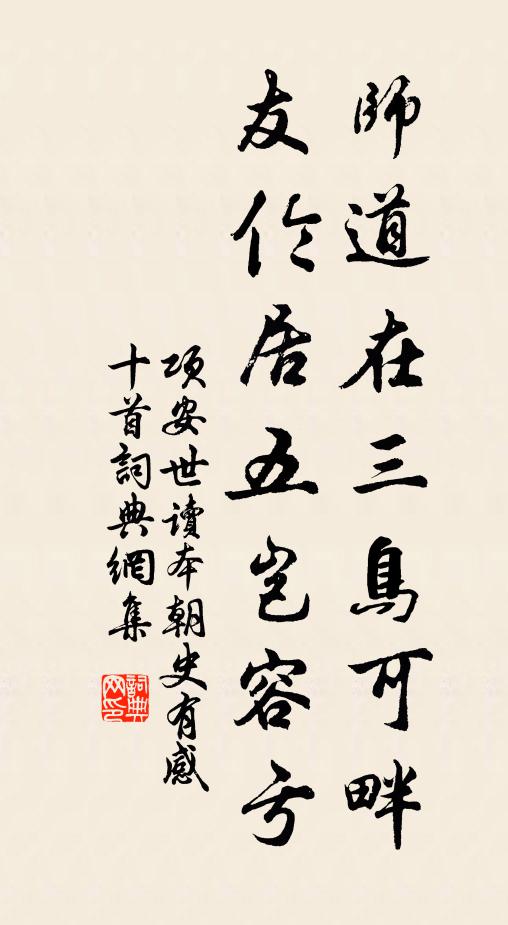 師道在三烏可畔
友伦居五岂容亏
項安世讀本朝史有感
十首詞典網集
詞典网印